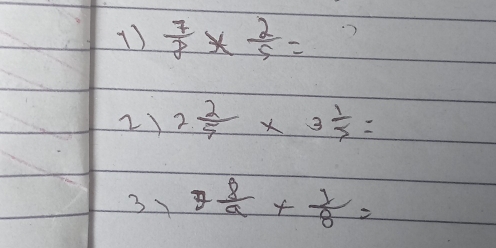 1) 7/8 × 2/5 =
2) 2 2/5 × 3 1/5 =
3) 8/9 + 1/8 =